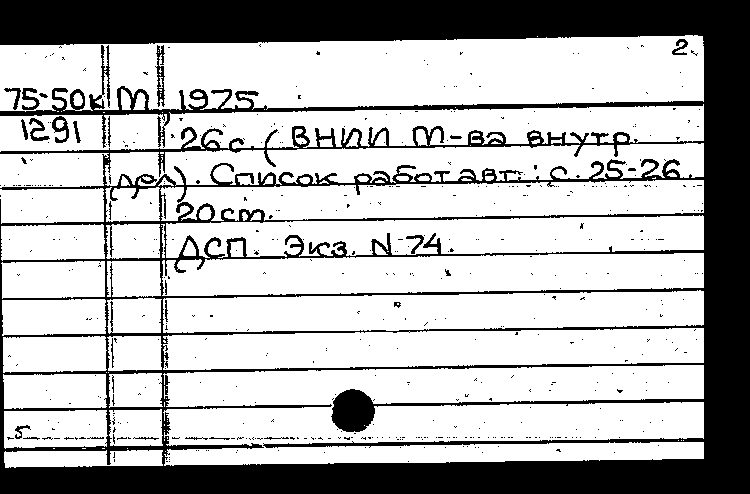 2
75-50к М, 1975.
1291 26 с. (ВНИИ М-ва внутр.
дел). Список работ авт.: с. 25-26.
20 cm.
ДСП. Экз. N 74.
5